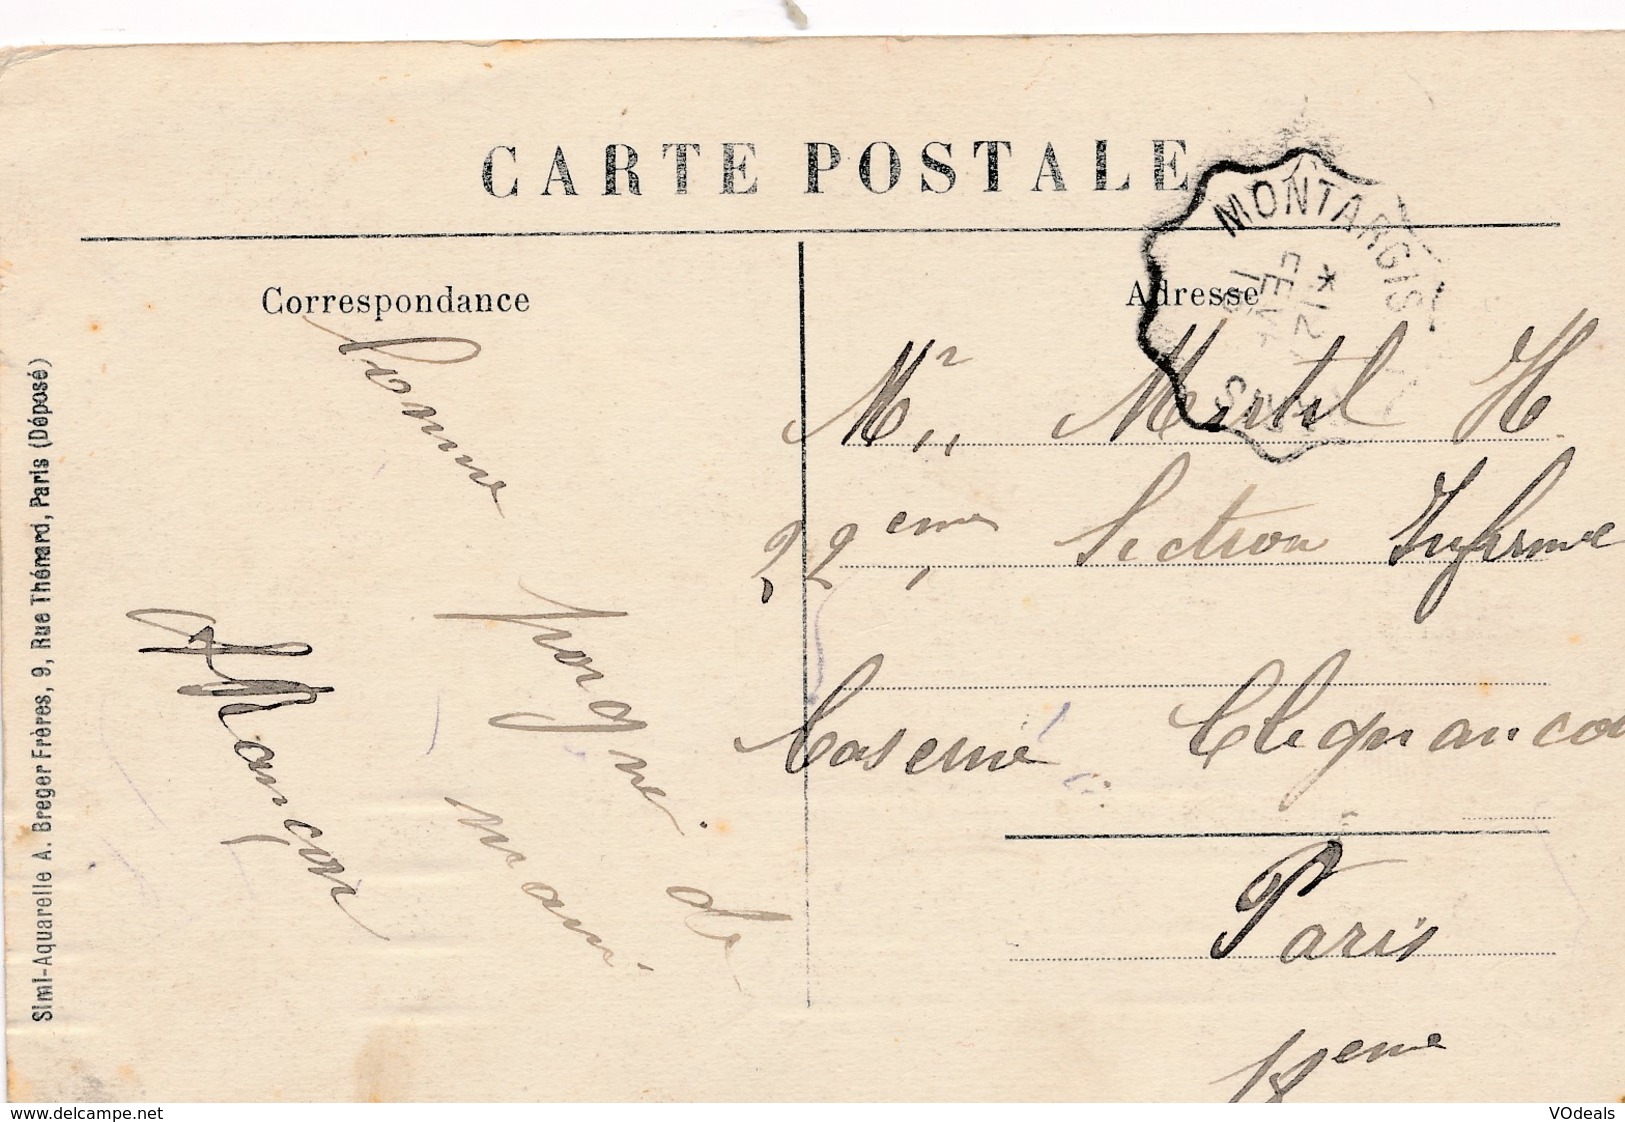 CARTE POSTALE
Correspondance
Adresse
MONTARGIS
* 12
FEV
bonne
pogne. de
main.
AMançon
Mr Mertel H
22eme Section Infirme
Caserne Clignancou
Paris
18eme
Simi-Aquarelle A. Breger Frères, 9, Rue Thénard, Paris (Déposé)
www.delcampe.net
VOdeals